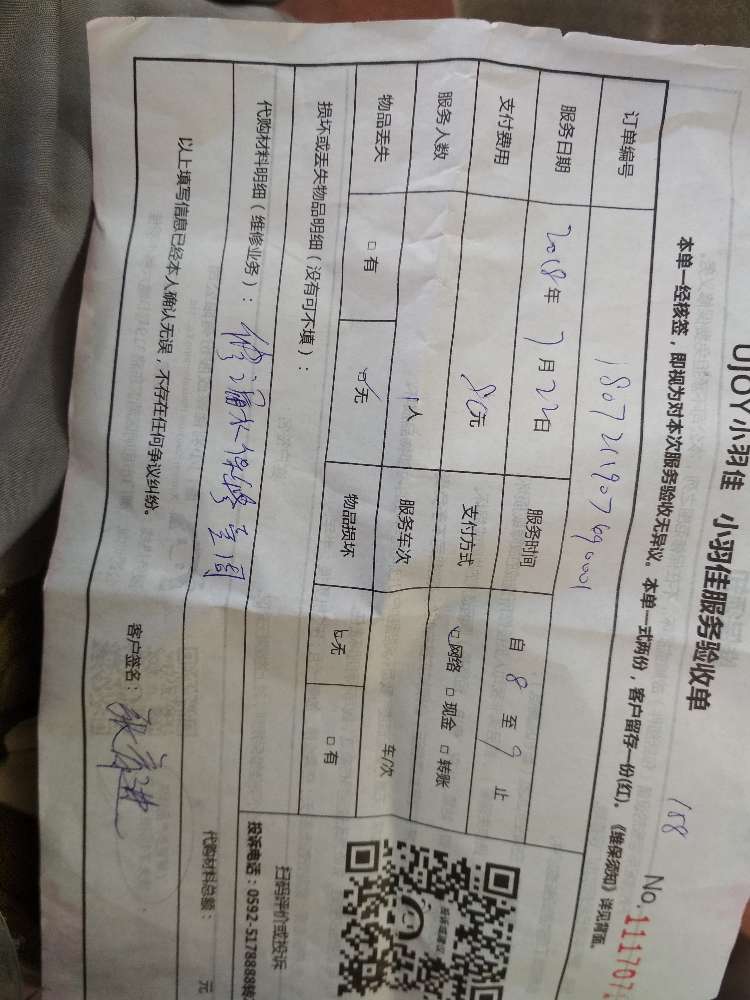 UJOY小羽佳 小羽佳服务验收单
158
No.111707
本单一经核签，即视为对本次服务验收无异议。本单一式两份，客户留存一份(红)。《维保须知》详见背面。
订单编号 180721907690001
服务日期 2018年7月22日 服务时间 自8至9止
支付费用 80元 支付方式 网络 □现金 □转账
服务人数 1人 服务车次 车/次
物品丢失 □有 无 物品损坏 无 □有
损坏或丢失物品明细（没有可不填）：
代购材料明细（维修业务）：修漏水保修壹周
代购材料总额： 元
以上填写信息已经本人确认无误，不存在任何争议纠纷。 客户签名：
投诉或建议
扫码评价或投诉
投诉电话：0592-5178888转